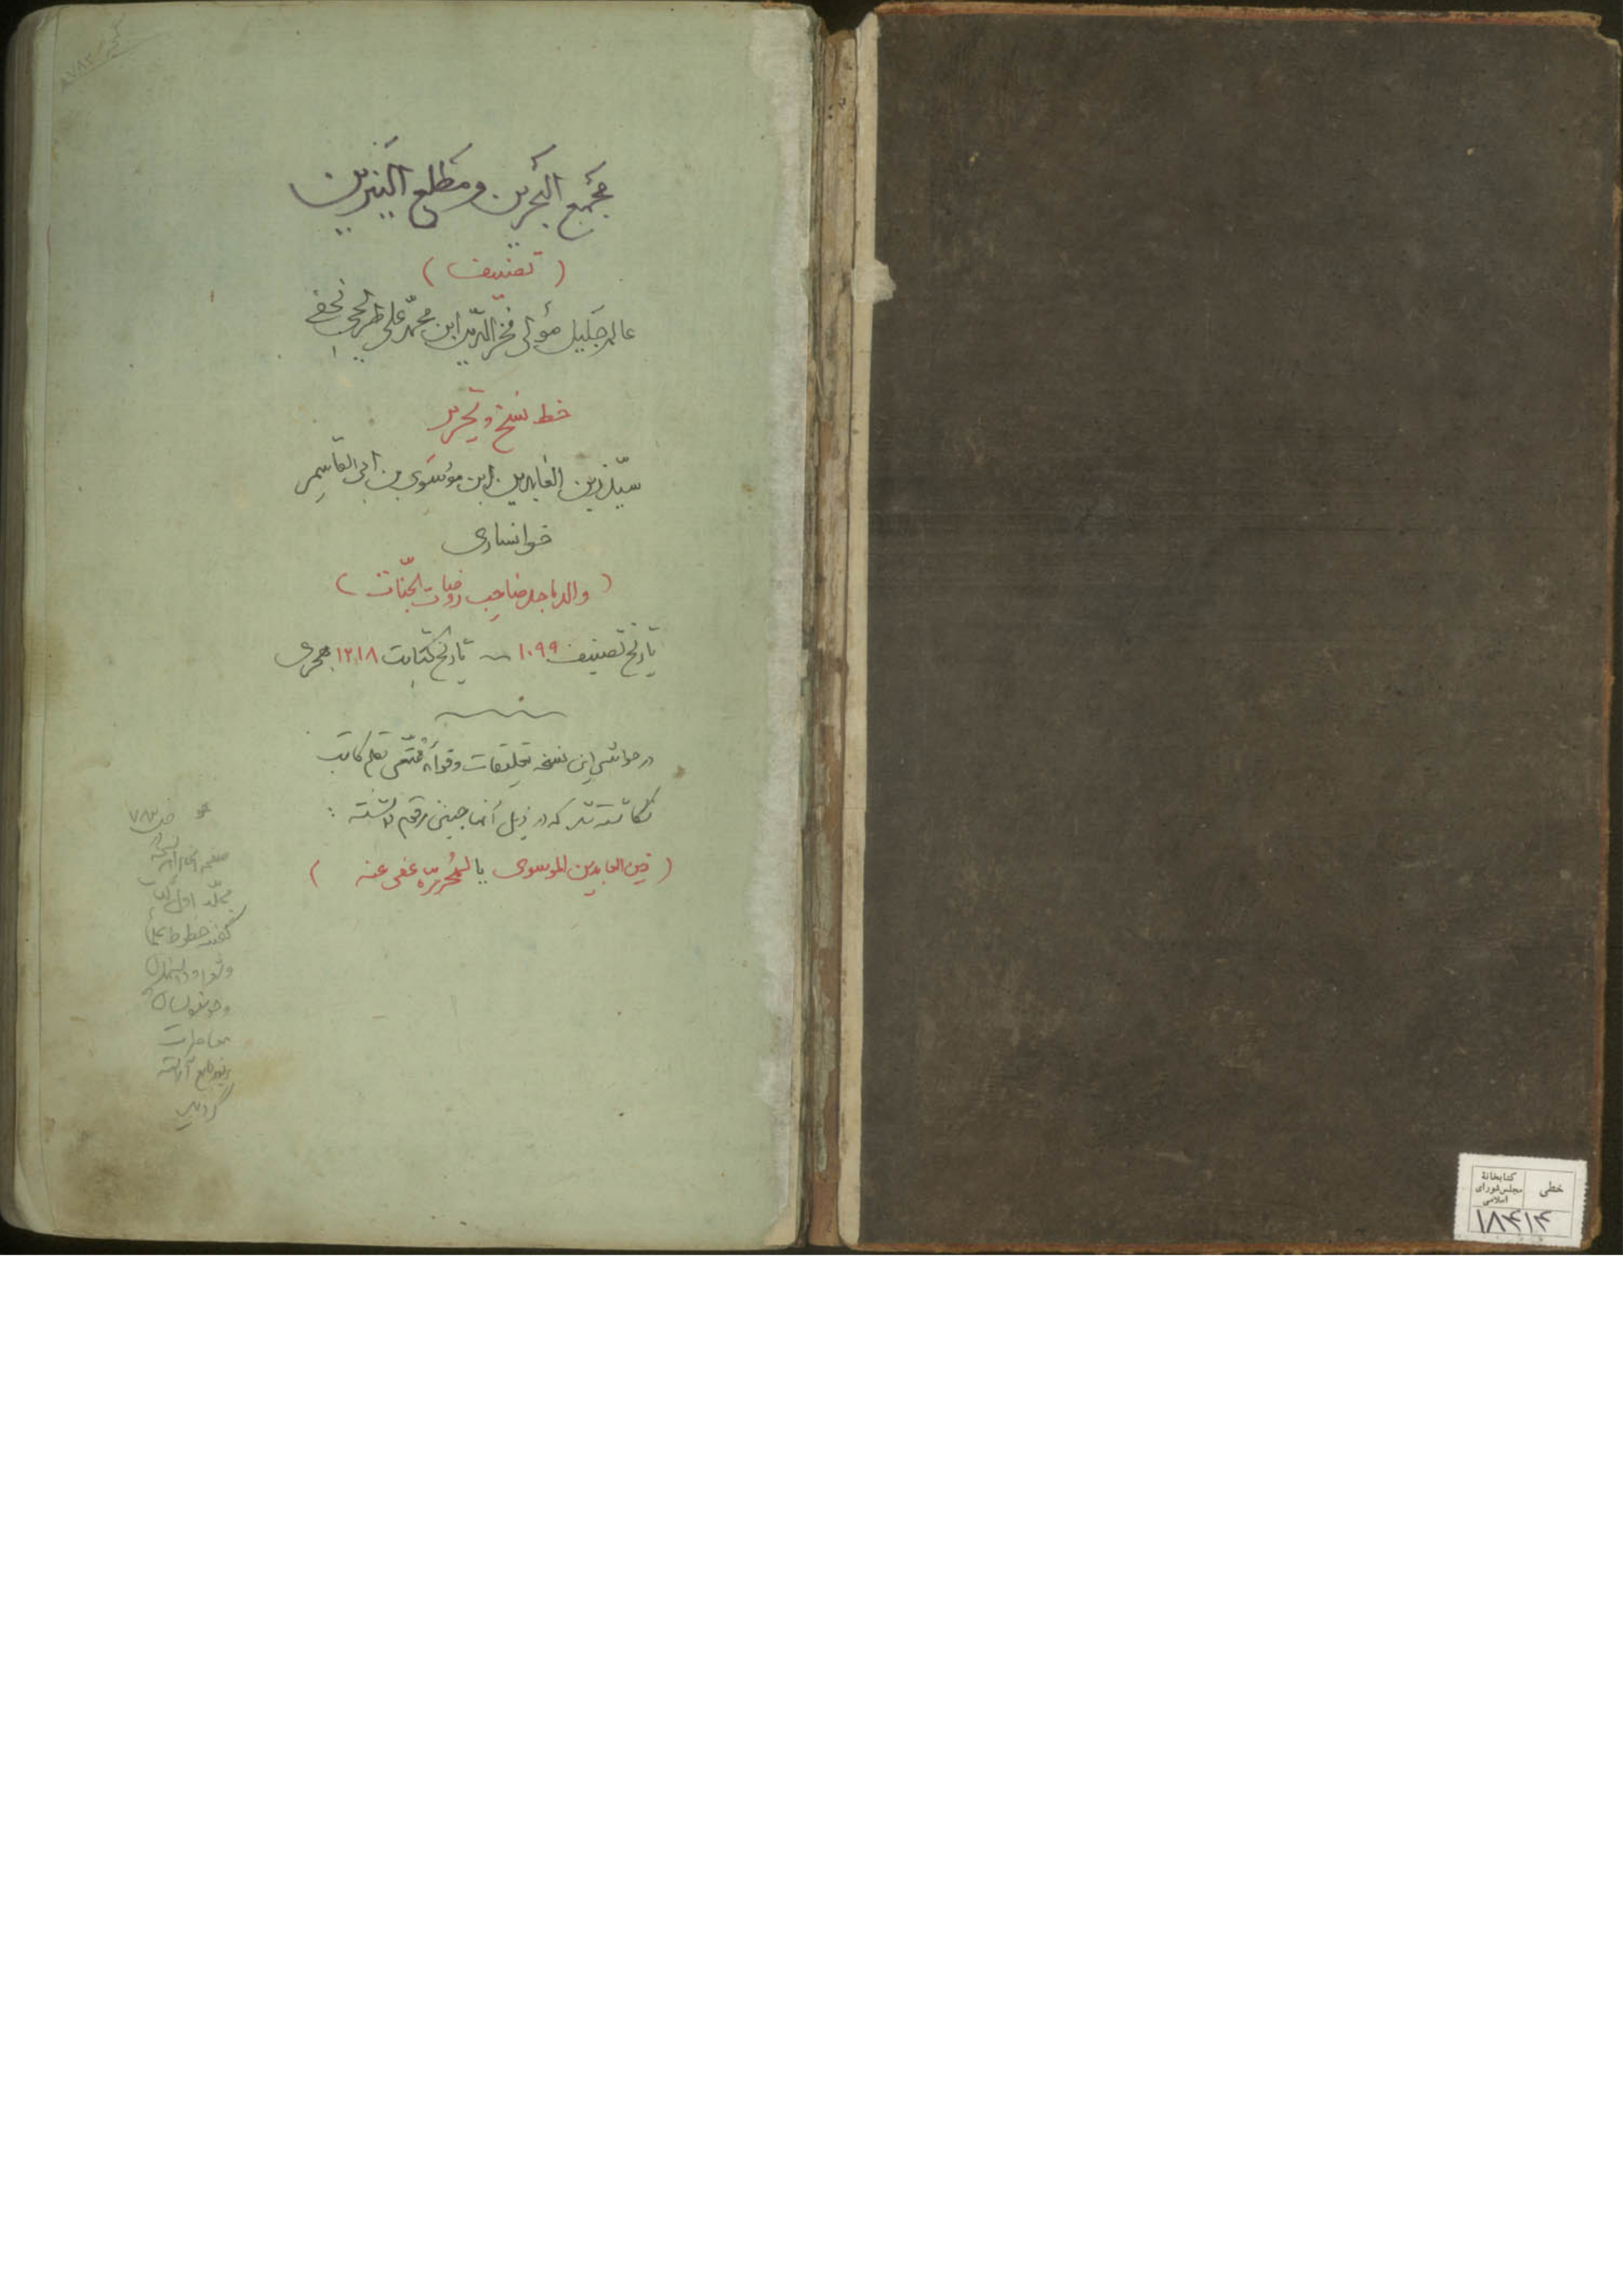 مجمع البحرین و مطلع النیرین
(تصنیف)
عالم جلیل مولی فخر الدّین ابن محمّد علی طریحی نجفی
خط نسخ و تحریر
سیّد زین العابدین ابن موسوی بن ابی القاسم
خوانساری
(والد ماجد صاحب روضات الجنّات)
تاریخ تصنیف ۱۰۹۹ ـ تاریخ کتابت ۱۲۱۸ هجری
در حواشی این نسخه تعلیقات و فوائد مُتمّمی بقلم کاتب
نگاشته شد که در ذیل آنها چنین رقم داشته :
(زین العابدین الموسوی یا لمُحرّره عفی عنه)
مجلّد اول
خطوط علما
و شعرا و دانشمندان
و خوشنویسان
گردید
خطی
کتابخانهٔ
مجلس شورای
اسلامی
۱۷۴۱۴